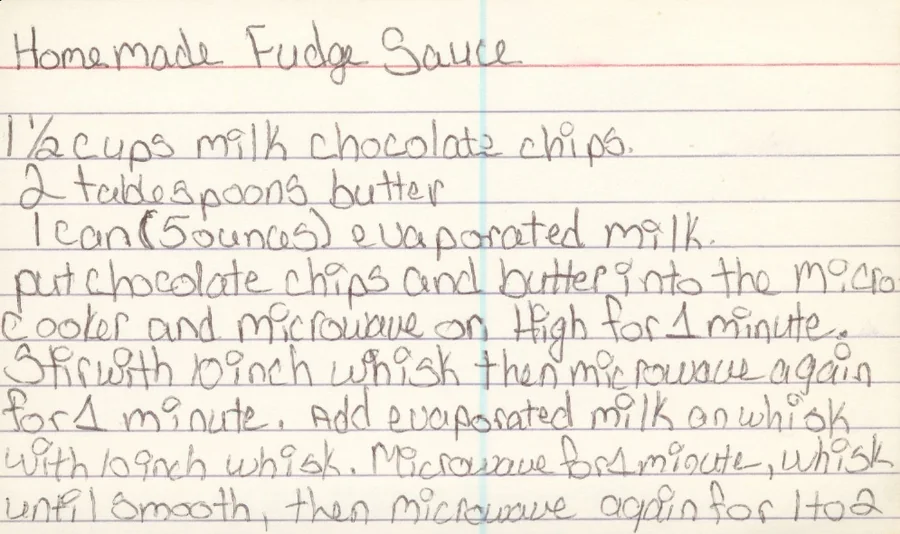 Homemade Fudge Sauce
1 1/2 cups milk chocolate chips.
2 tablespoons butter
1 can (5 ounces) evaporated milk.
put chocolate chips and butter into the micro
Cooker and microwave on High for 1 minute.
Stir with 10 inch whisk then microwave again
for 1 minute. Add evaporated milk an whisk
with 10 inch whisk. Microwave for 1 minute, whisk
until smooth, then microwave again for 1 to 2